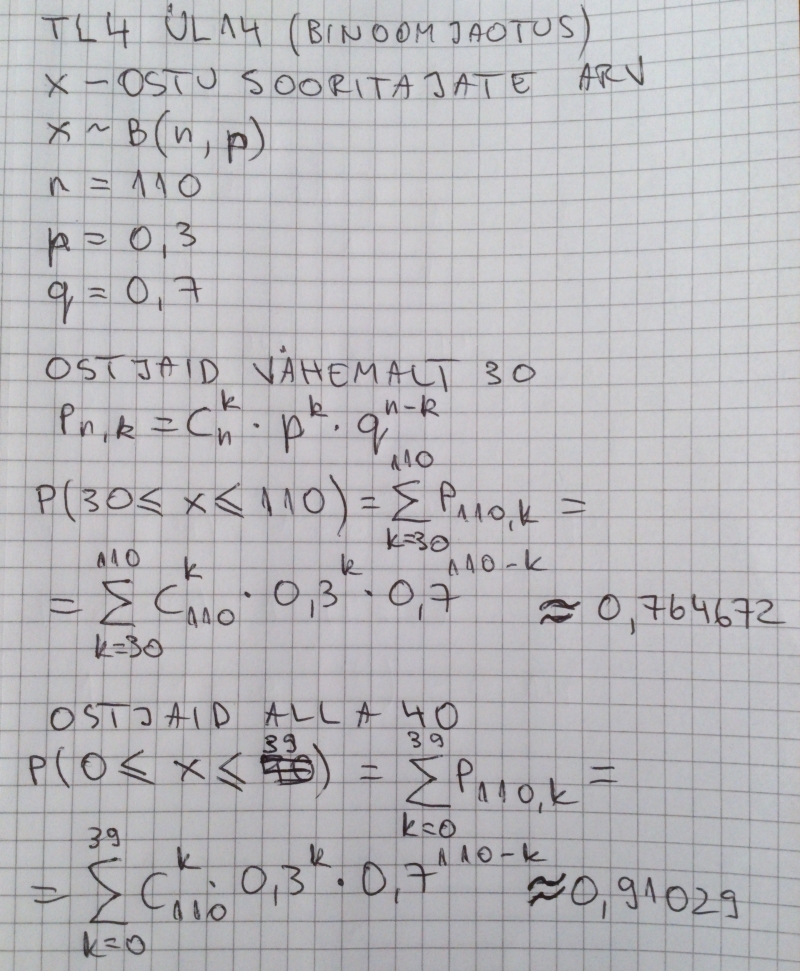 TL4 ÜL14 (BINOOMJAOTUS)
X – OSTU SOORITAJATE ARV
X ~ B(n, p)
n = 110
p = 0,3
q = 0,7
OSTJAID VÄHEMALT 30
P_{n,k} = C_n^k · p^k · q^{n-k}
P(30 ≤ X ≤ 110) = \sum_{k=30}^{110} P_{110,k} =
= \sum_{k=30}^{110} C_{110}^k · 0,3^k · 0,7^{110-k} ≈ 0,764672
OSTJAID ALLA 40
P(0 ≤ X ≤ 39) = \sum_{k=0}^{39} P_{110,k} =
= \sum_{k=0}^{39} C_{110}^k · 0,3^k · 0,7^{110-k} ≈ 0,91029